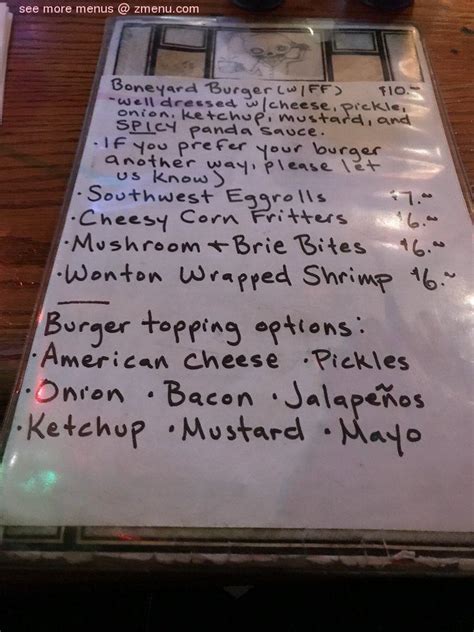 see more menus @ zmenu.com
Boneyard Burger (w/FF) $10.-
-well dressed w/cheese, pickle,
onion, ketchup, mustard, and
SPICY panda sauce.
·IF you prefer your burger
another way, please let
us know)
·Southwest Eggrolls $7.00
·Cheesy Corn Fritters $6.00
·Mushroom + Brie Bites $6.00
·Wonton Wrapped Shrimp $6.00
Burger topping options:
·American Cheese ·Pickles
·Onion ·Bacon ·Jalapeños
·Ketchup ·Mustard ·Mayo